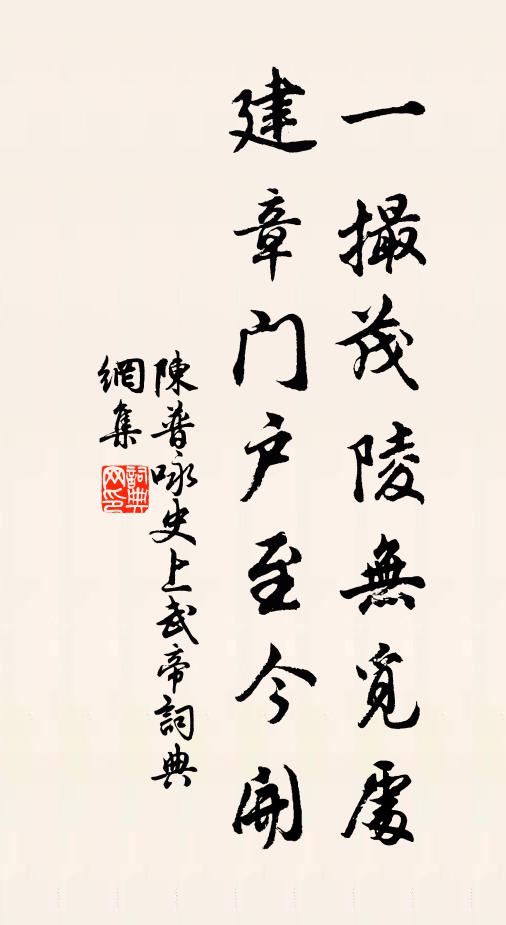 一撮茂陵無覓處
建章門户至今開
陳普咏史上武帝詞典
網集
詞典網印